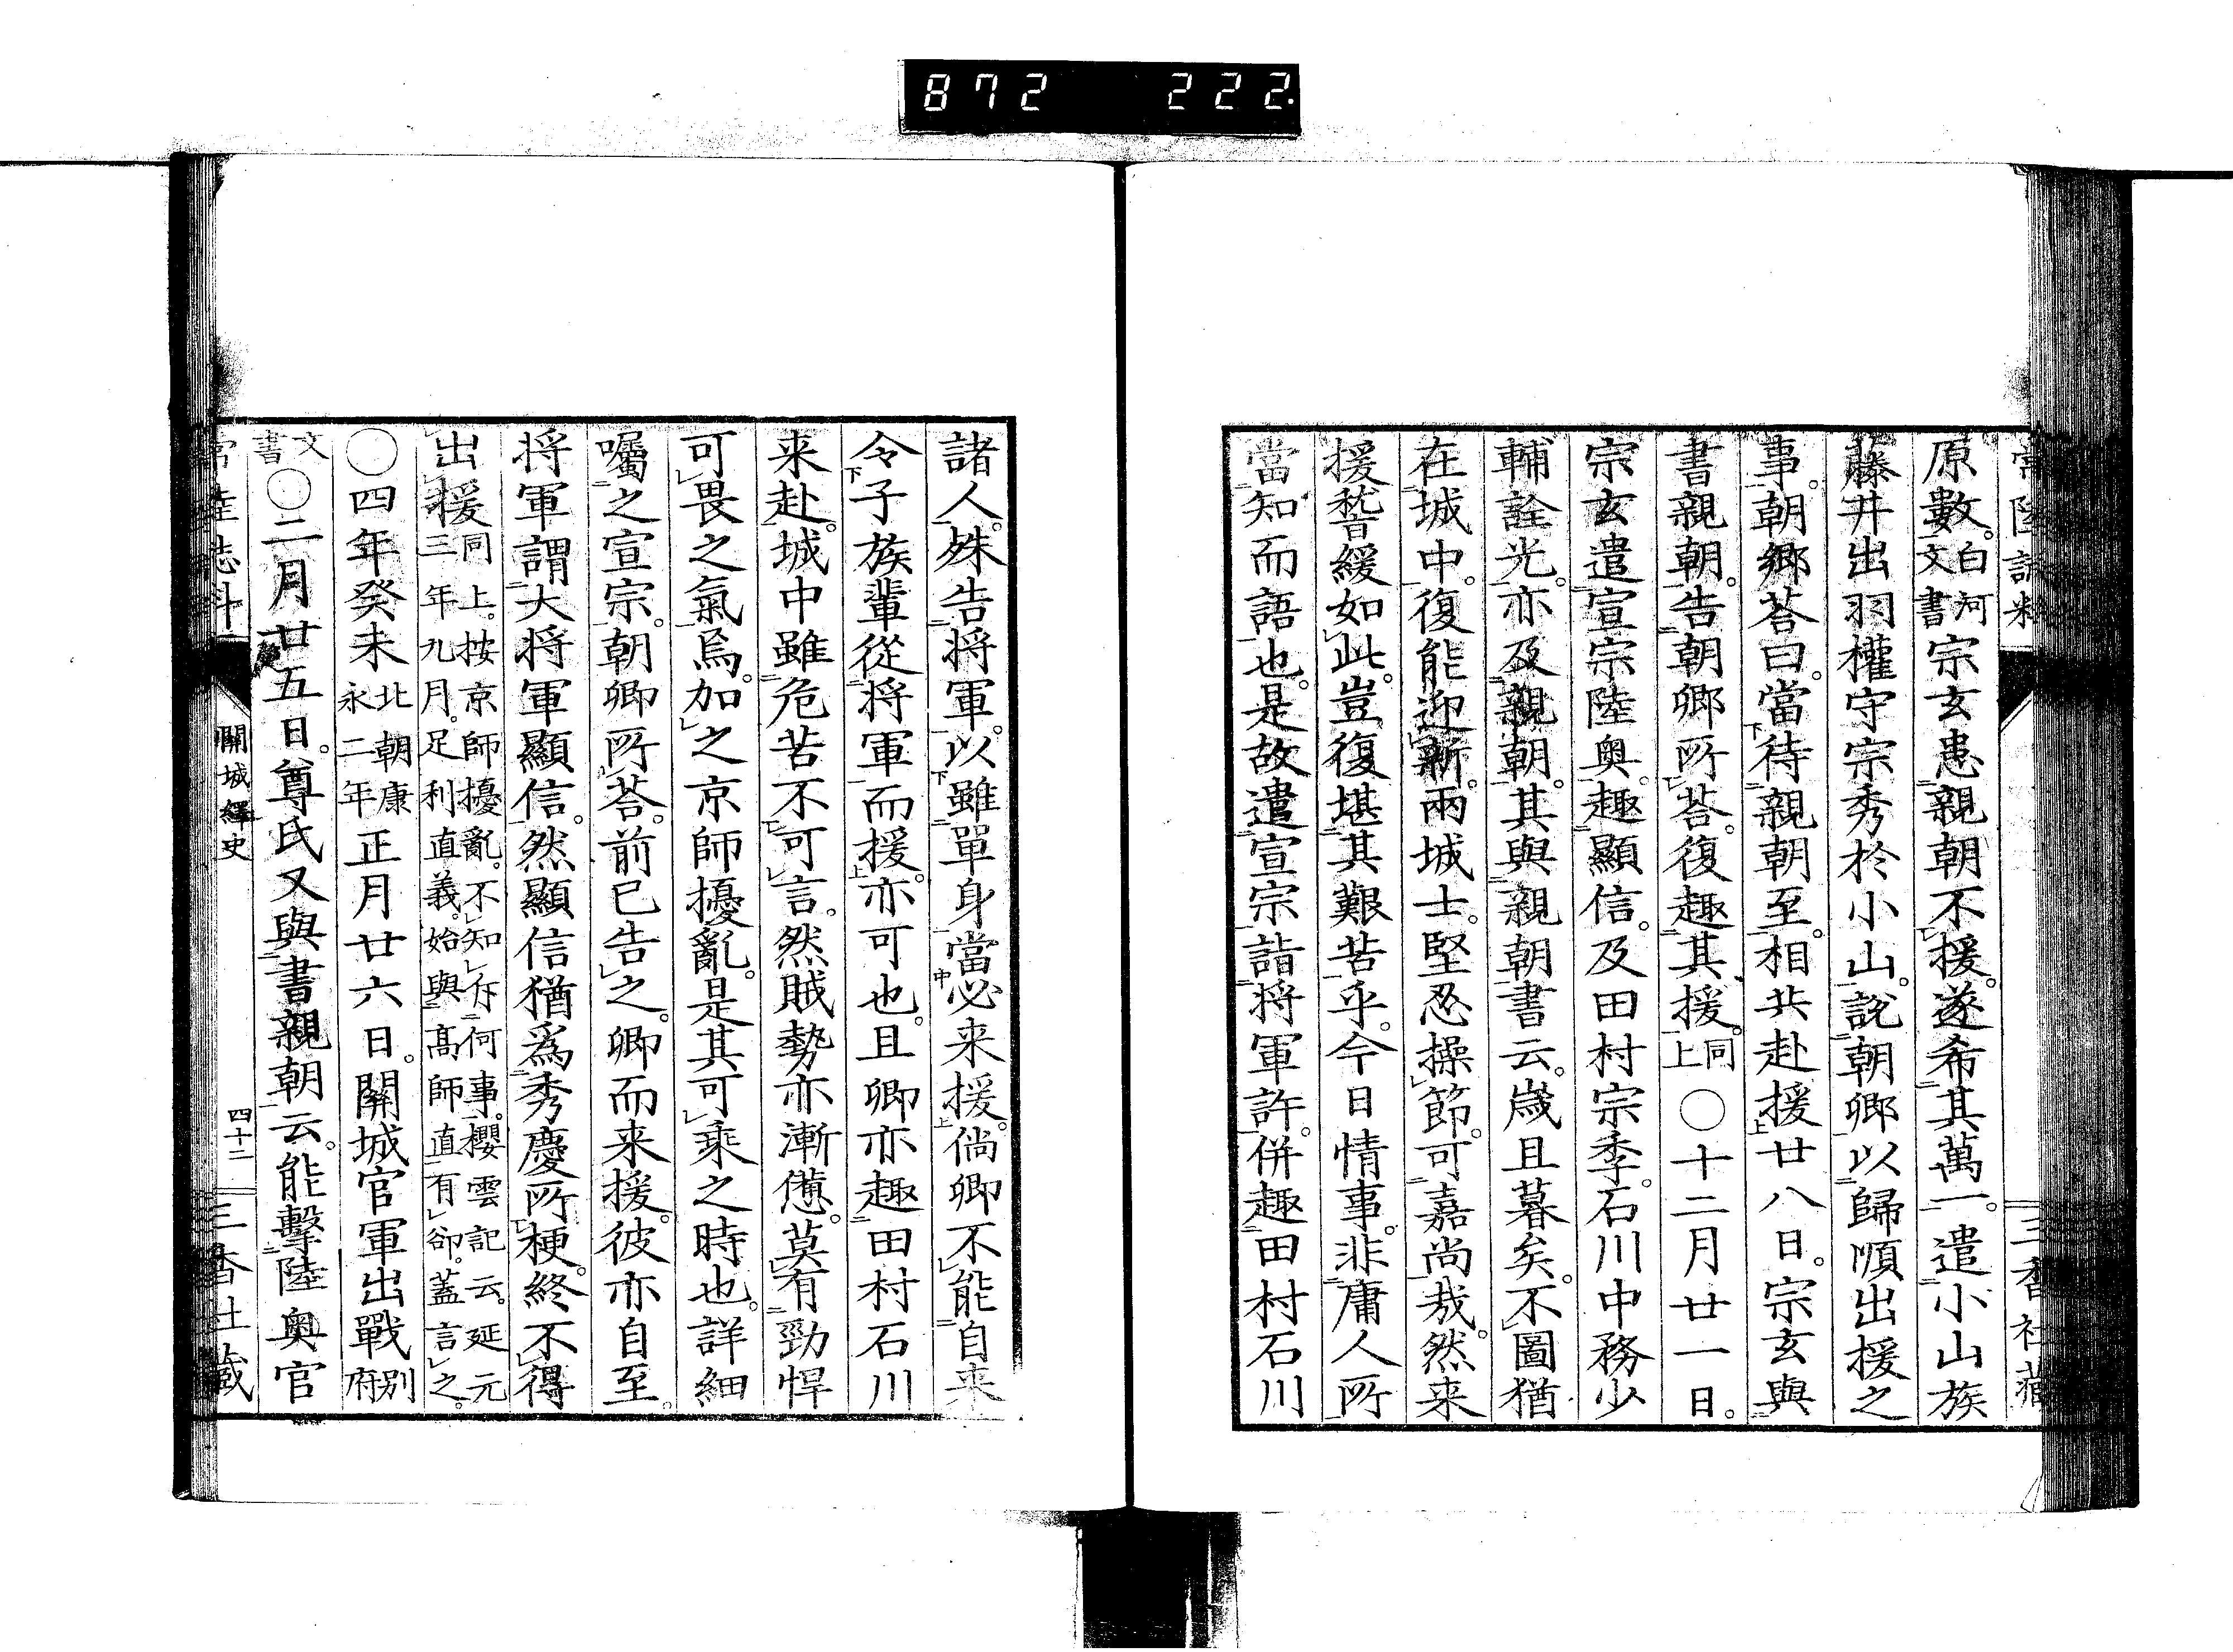 872 222.
常陸誌料
三香社藏
原數。白河文書宗玄患親朝不援。遂希其萬一。遣小山族
藤井出羽權守宗秀於小山。說朝郷以歸順出援之
事。朝郷荅曰。當待親朝至。相共赴援。廿八日。宗玄與
書親朝。告朝卿所荅。復趣其援。同上〇十二月廿一日。
宗玄遣宣宗陸奥。趣顯信。及田村宗季。石川中務少
輔詮光。亦及親朝。其與親朝書云。歳且暮矣。不圖猶
在城中。復能迎新。兩城士。堅忍操節。可嘉尚哉。然来
援嵆緩如此。豈復堪其艱苦乎。今日情事。非庸人所
當知而語也。是故遣宣宗詣将軍許。併趣田村石川
諸人。殊告将軍。以雖單身當必来援。倘卿不能自来
令子族輩從将軍而援。亦可也。且卿亦趣田村石川
来赴。城中雖危苦不可言。然賊勢亦漸憊。莫有勁悍
可畏之氣焉。加之京師擾亂。是其可乘之時也。詳細
囑之宣宗。朝卿所荅。前已告之。卿而来援。彼亦自至。
将軍謂大将軍顯信。然顯信猶爲秀慶所梗。終不得
出援同上。按京師擾亂。不知斥何事。櫻雲記云。延元三年九月。足利直義。始與高師直有郤。蓋言之。
〇四年癸未北朝康永二年正月廿六日。關城官軍出戰別府
文書〇二月廿五日。尊氏又與書親朝云。能擊陸奥官
常陸誌料
關城繹史
四十二
三香社藏